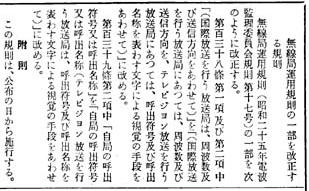 無線局運用規則の一部を改正す
る規則
無線局運用規則（昭和二十五年電波
監理委員会規則第十七号）の一部を次
のように改正する。
第百三十八条第一項及び第二項中
「（国際放送を行う放送局は、周波数及
び送信方向をあわせて）」を「（国際放送
を行う放送局にあつては、周波数及び
送信方向を、テレビジョン放送を行う
放送局にあつては、呼出符号及び呼出
名称を表わす文字による視覚の手段を
あわせて）」に改める。
第百三十九条第二項中「自局の呼出
符号又は呼出名称」を「自局の呼出符号
又は呼出名称（テレビジョン放送を行
う放送局は、呼出符号及び呼出名称を
表わす文字による視覚の手段をあわせ
て）」に改める。
附則
この規則は、公布の日から施行する。